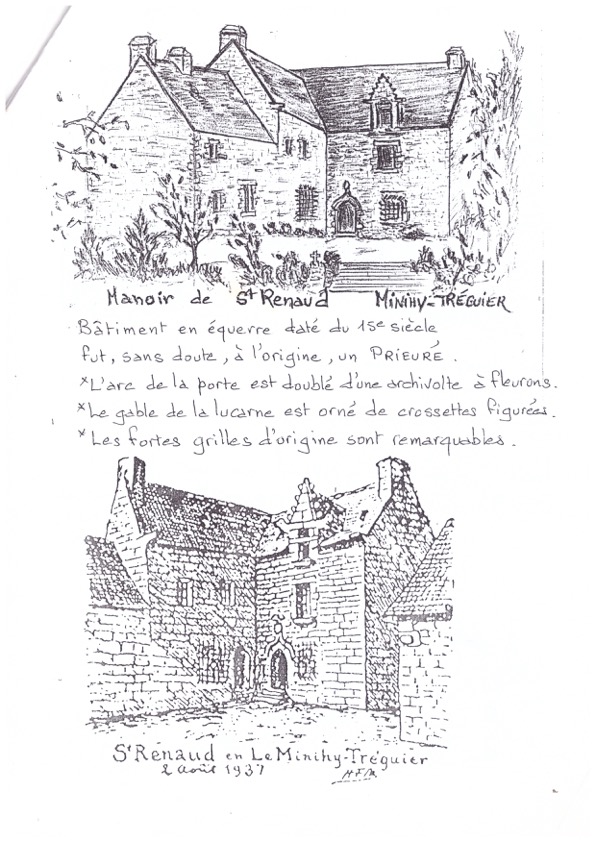 Manoir de St Renaud MINIHY-TRÉGUIER
Bâtiment en équerre daté du 15e siècle
fut, sans doute, à l'origine, un PRIEURÉ.
*L'arc de la porte est doublé d'une archivolte à fleurons.
*Le gable de la lucarne est orné de crossettes figurées.
*Les fortes grilles d'origine sont remarquables.
St Renaud en Le Minihy-Tréguier
2 Août 1937 HFM